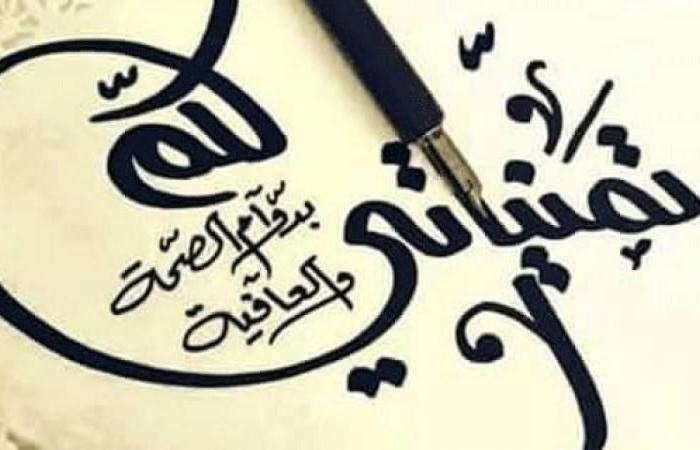 تمنياتي
لكم
بدوام الصحّة
والعافية